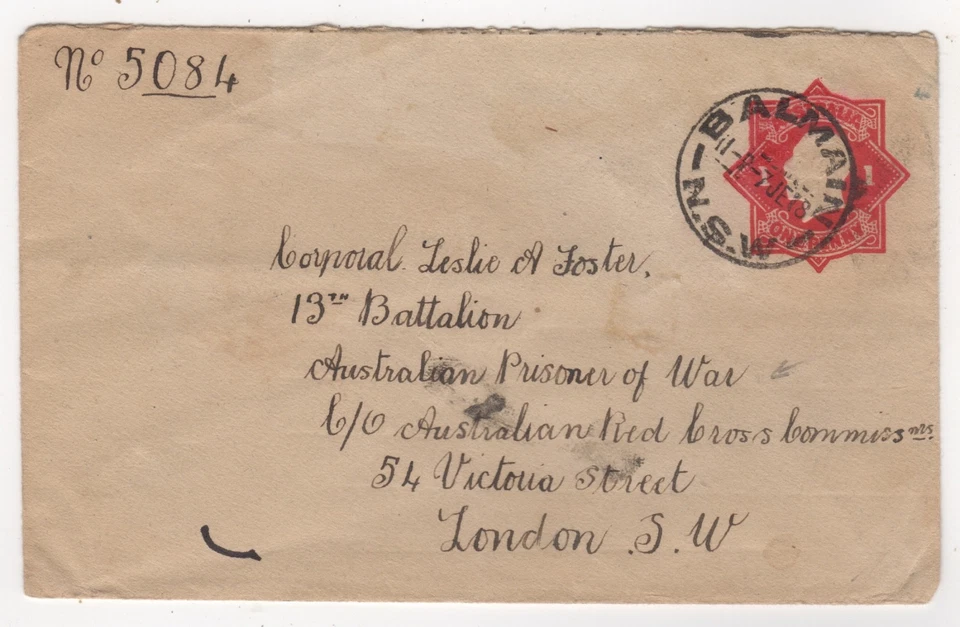 No 5084
BALMAIN
N.S.W
7 JE 18
ONE PENNY
Corporal Leslie A Foster,
13TH Battalion
Australian Prisoner of War
C/O Australian Red Cross Commissnrs.
54 Victoria Street
London . S. W